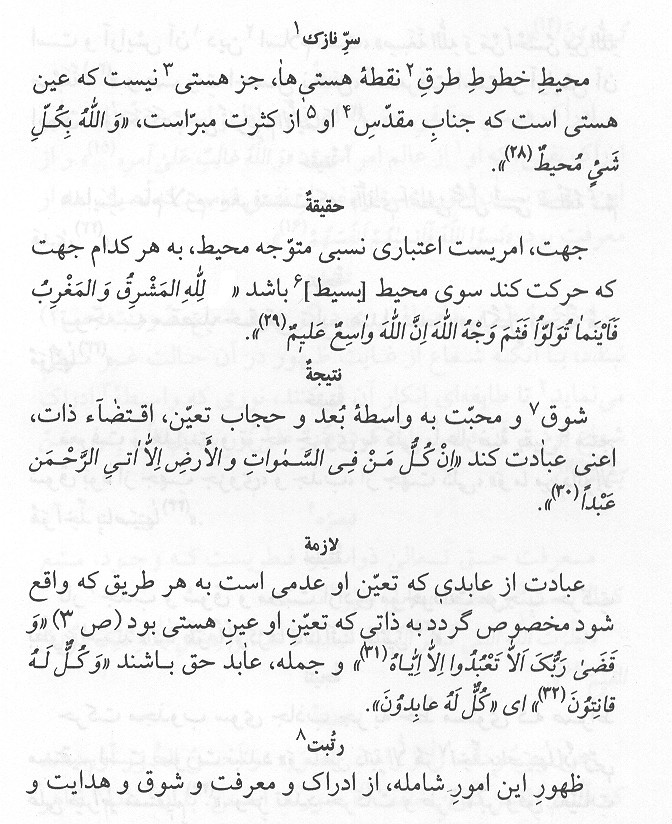 سرِّ نازک ۱
محیطِ خطوطِ طرقِ ۲ نقطهٔ هستی‌ها، جز هستی ۳ نیست که عین
هستی است که جنابِ مقدّسِ ۴ او ۵ از کثرت مبرّاست، «وَ اللّٰهُ بِکُلّ
شَیْیٍٔ مُحیطٌ (۲۸)».
حقیقةٌ
جهت، امریست اعتباری نسبی متوّجه محیط، به هر کدام جهت
که حرکت کند سوی محیط [بسیط] ۶ باشد « لِلّٰهِ المَشْرِقُ وَ المَغْرِبُ
فَاَیْنَمٰا تُوَلوّاُ فَثَمَ وَجْهُ اللّٰهَ اِنَّ اللّٰهَ واسِعٌ عَلیمٌ (۲۹)».
نتیجةٌ
شوق ۷ و محبّت به واسطهٔ بُعد و حجاب تعیّن، اقتضآء ذات،
اعنی عبادت کند «اِنْ کُلُّ مَنْ فِی السَّمٰواتِ و الأَرضِ اِلاّٰ اتیِ الرَّحْمَن
عَبْداً (۳۰)».
لازمة
عبادت از عابدی که تعیّن او عدمی است به هر طریق که واقع
شود مخصوص گردد به ذاتی که تعیّنِ او عینِ هستی بود (ص ۳) «وَ
قَضَیٰ رَبُّکَ اَلاّٰ تَعْبُدُوا اِلاّٰ اِیّٰاهُ (۳۱)» و جمله، عابد حق باشند «وَ کُلٌّ لَهُ
قانِتوُنَ (۳۲)» ای «کُلٌّ لَهُ عابِدوُنَ».
رتُبت ۸
ظهورِ این امورِ شامله، از ادراک و معرفت و شوق و هدایت و